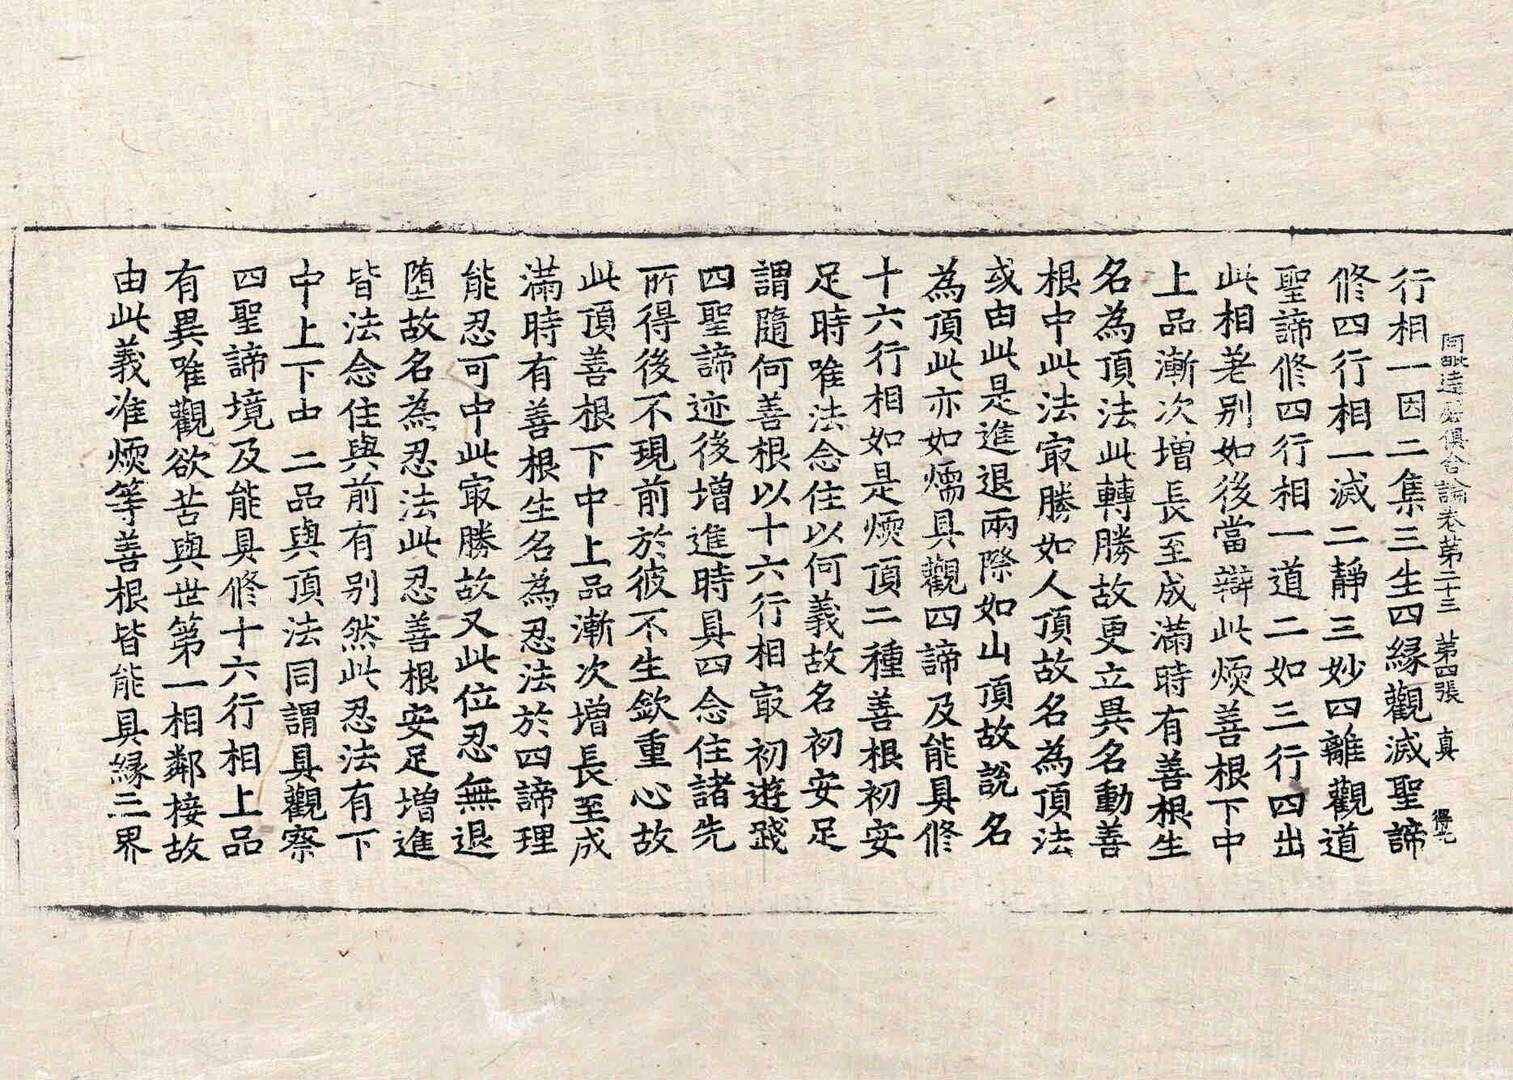 阿毗達磨俱舍論卷第二十三 第四張 真 得光
行相一因二集三生四緣觀滅聖諦
修四行相一滅二靜三妙四離觀道
聖諦修四行相一道二如三行四出
此相差別如後當辯此煗善根下中
上品漸次增長至成滿時有善根生
名為頂法此轉勝故更立異名動善
根中此法㝡勝如人頂故名為頂法
或由此是進退兩際如山頂故說名
為頂此亦如煗具觀四諦及能具修
十六行相如是煗頂二種善根初安
足時唯法念住以何義故名初安足
謂隨何善根以十六行相㝡初遊踐
四聖諦迹後增進時具四念住諸先
所得後不現前於彼不生欽重心故
此頂善根下中上品漸次增長至成
滿時有善根生名為忍法於四諦理
能忍可中此㝡勝故又此位忍無退
墮故名為忍法此忍善根安足增進
皆法念住與前有別然此忍法有下
中上下中二品與頂法同謂具觀察
四聖諦境及能具修十六行相上品
有異唯觀欲苦與世第一相鄰接故
由此義准煗等善根皆能具緣三界